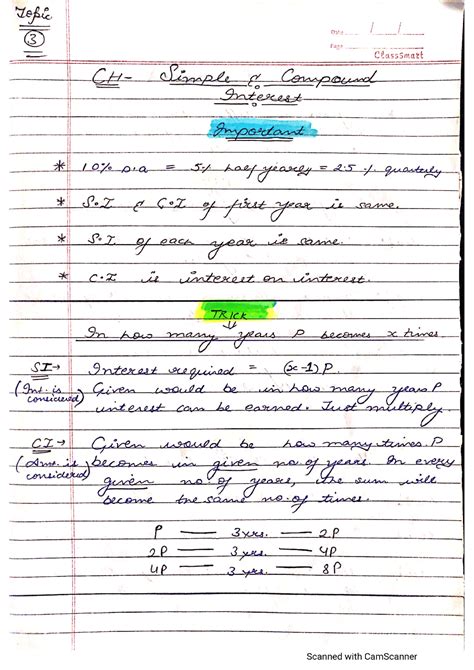 Topic
3
Date / /
Page
ClassSmart
CH- Simple & Compound
Interest
Important
* 10% p.a = 5% half yearly = 2.5 % quarterly
* S.I & C.I of first year is same.
* S.I of each year is same.
* C.I is interest on interest.
TRICK
In how many years P becomes x times.
SI→ Interest required = (x-1) P.
(Int. is considered) Given would be in how many years P
interest can be earned. Just multiply.
CI→ Given would be how many times P
(Amt. is considered) becomes in given no of years. In every
given no of years, the sum will
become the same no. of times.
P — 3 yrs. — 2P
2P — 3 yrs. — 4P
4P — 3 yrs. — 8P
Scanned with CamScanner